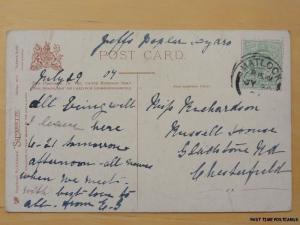 POST CARD
MATLOCK
July 29 04
All being well
I leave here
6-21 tomorrow
afternoon - all news
when we meet -
with best love to
all. from
Miss Richardson
Russell House
Gladstone Rd
Chesterfield
PAST TIME POSTCARDS